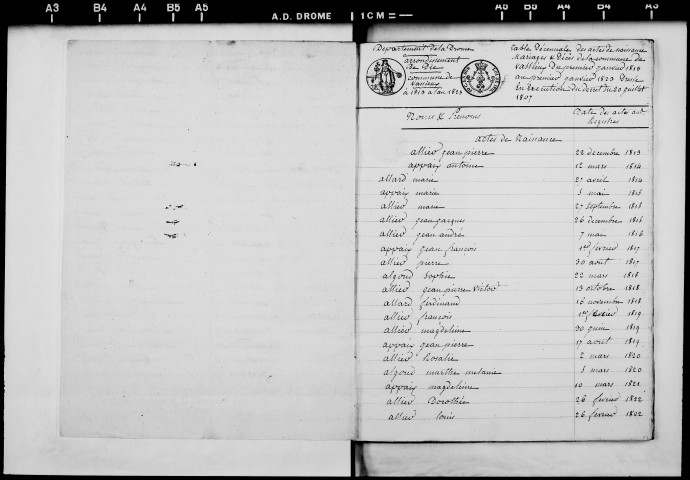 A3 B4 A4 B5 A5 A.D. DROME 1 CM A5 B5 A4 B4 A3
Département de la Drome
arrondissement
De Die
commune de
Vassieux
a 1813 a l'an 1823
table Décennale des actes de naissance
Mariages & Décès de la commune de
Vassieux Du premier janvier 1813
au premier janvier 1823 Dressé
En Execution du décret du 20 juillet
1807
Noms & Prenoms
Date des actes aux
Registres
actes de Naissance
allier jean pierre 22 decembre 1813
appaix antoine 12 mars 1814
allard marie 27 avril 1814
appaix marie 5 mai 1815
allier marie 27 septembre 1815
allier jean jacques 26 decembre 1815
allier jean andré 7 mai 1816
appaix jean françois 1er fevrier 1817
allier pierre 30 aout 1817
algoud Sophie 22 mars 1818
allier jean pierre Victor 13 octobre 1818
allard ferdinand 16 novembre 1818
allier françois 1er fevrier 1819
allier magdeleine 30 juin 1819
appaix jean pierre 17 aout 1819
allier Rosalie 2 mars 1820
algoud marthe melanie 5 mars 1820
appaix magdeleine 10 mars 1821
allier Dorothée 26 fevrier 1822
allier louis 26 fevrier 1822